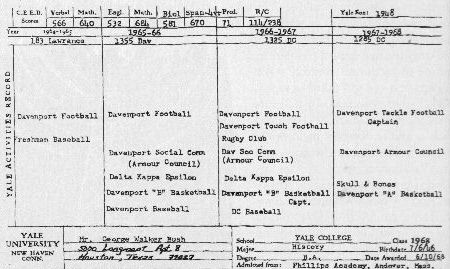 C.E.E.B. Verbal Math. Engl. Math. Biol Span-4yr Pred. R/C Yale Home: 1948
Scores 566 640 532 684 581 670 71 114/238
Year 1964-1965 1965-66 1966-1967 1967-1968
183 Lawrance 1355 Dav 1385 DC 1285 DC
YALE ACTIVITIES RECORD
Davenport Football Davenport Football Davenport Football Davenport Tackle Football
Captain
Davenport Touch Football
Freshman Baseball Rugby Club
Davenport Social Comm Dav Soc Comm Davenport Armour Council
(Armour Council) (Armour Council)
Delta Kappa Epsilon Delta Kappa Epsilon
Skull & Bones
Davenport "B" Basketball Davenport "B" Basketball Davenport "A" Basketball
Capt.
Davenport Baseball DC Baseball
YALE
UNIVERSITY
NEW HAVEN
CONN.
Mr. George Walker Bush
5000 Longmont Apt. 8
Houston, Texas 77027
School YALE COLLEGE Class 1968
Major History Birthdate 7/6/46
Degree B.A. Date Awarded 6/10/68
Admitted from: Phillips Academy, Andover, Mass.